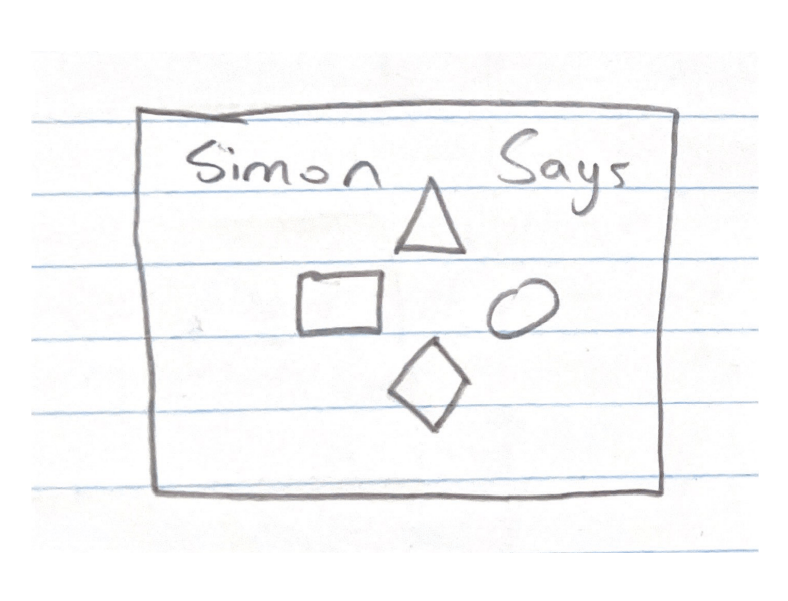 Simon Says